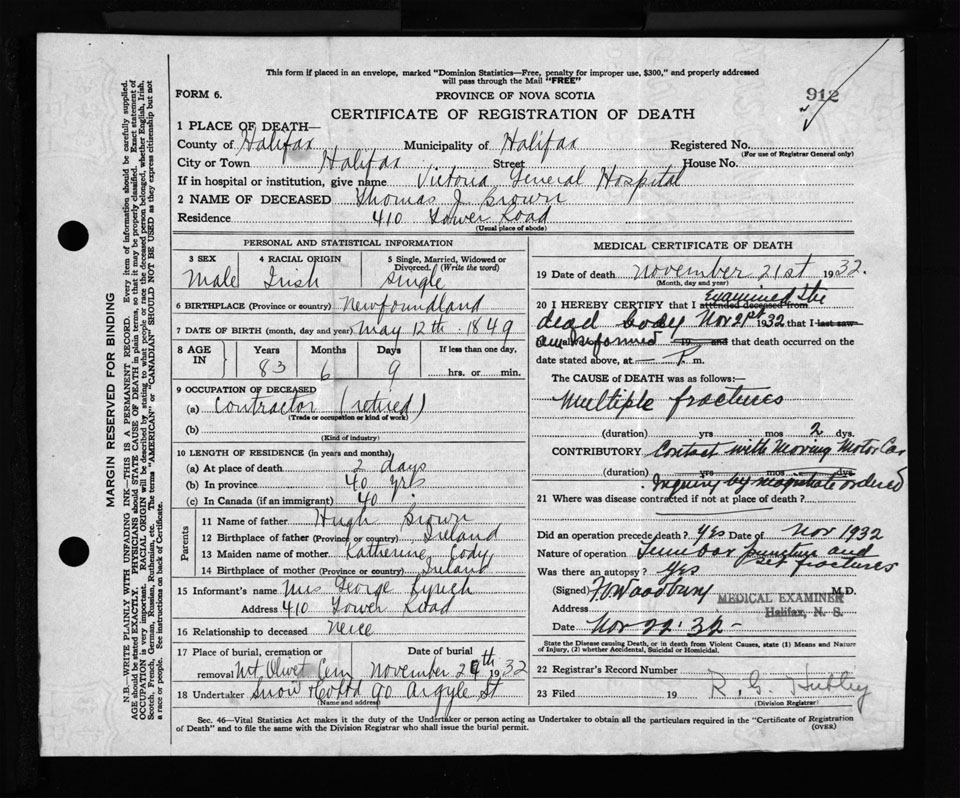 This form if placed in an envelope, marked "Dominion Statistics—Free, penalty for improper use, $300," and properly addressed
will pass through the Mail "FREE"
FORM 6.
PROVINCE OF NOVA SCOTIA
912
CERTIFICATE OF REGISTRATION OF DEATH
1 PLACE OF DEATH—
County of Halifax Municipality of Halifax Registered No.
(For use of Registrar General only)
City or Town Halifax Street House No.
If in hospital or institution, give name Victoria General Hospital
2 NAME OF DECEASED Thomas J Brown
Residence 410 Tower Road
(Usual place of abode)
PERSONAL AND STATISTICAL INFORMATION
3 SEX 4 RACIAL ORIGIN 5 Single, Married, Widowed or
Divorced. (Write the word)
Male Irish Single
6 BIRTHPLACE (Province or country) Newfoundland
7 DATE OF BIRTH (month, day and year) May 12th. 1849
8 AGE IN Years Months Days If less than one day,
83 6 9 hrs. or min.
9 OCCUPATION OF DECEASED
(a) Contractor (retired)
(Trade or occupation or kind of work)
(b)
(Kind of industry)
10 LENGTH OF RESIDENCE (in years and months)
(a) At place of death 2 days
(b) In province 40 yrs
(c) In Canada (if an immigrant) 40
Parents
11 Name of father Hugh Brown
12 Birthplace of father (Province or country) Ireland
13 Maiden name of mother Katherine Cody
14 Birthplace of mother (Province or country) Ireland
15 Informant's name Mrs George Lynch
Address 410 Tower Road
16 Relationship to deceased Neice
17 Place of burial, cremation or Date of burial
removal Mt Olivet Cem November 24th 1932
18 Undertaker Snow & Co Ltd 90 Argyle St
(Name and address)
MEDICAL CERTIFICATE OF DEATH
19 Date of death November 21st 1932.
(Month, day and year)
20 I HEREBY CERTIFY that I attended deceased from examined the
dead body Nov 21st 1932 that I last saw
am informed 19 and that death occurred on the
date stated above, at P. m.
The CAUSE of DEATH was as follows:—
Multiple fractures
(duration) yrs mos 2 dys.
CONTRIBUTORY Contact with Moving Motor Car
(duration) yrs mos dys
Inquiry by magistrate ordered
21 Where was disease contracted if not at place of death?
Did an operation precede death? Yes Date of Nov 1932
Nature of operation Lumbar puncture and
set fractures
Was there an autopsy? Yes
(Signed) Woodbury M.D.
MEDICAL EXAMINER
Address Halifax, N. S.
Date Nov 22. 32
State the Disease causing Death, or in death from Violent Causes, state (1) Means and Nature
of Injury, (2) whether Accidental, Suicidal or Homicidal.
22 Registrar's Record Number
23 Filed 19
(Division Registrar)
Sec. 46—Vital Statistics Act makes it the duty of the Undertaker or person acting as Undertaker to obtain all the particulars required in the "Certificate of Registration
of Death" and to file the same with the Division Registrar who shall issue the burial permit.
(OVER)
MARGIN RESERVED FOR BINDING
N.B.—WRITE PLAINLY WITH UNFADING INK—THIS IS A PERMANENT RECORD. Every item of information should be carefully supplied.
AGE should be stated EXACTLY. PHYSICIANS should STATE CAUSE OF DEATH in plain terms, so that it may be properly classified. Exact statement of
OCCUPATION is very important. RACIAL ORIGIN will be described by stating to what people or race the deceased person belonged, whether English, Irish,
Scotch, French, German, Russian, Ruthenian, etc. The terms "AMERICAN" or "CANADIAN" SHOULD NOT BE USED as they express citizenship but not
a race or people. See instructions on back of Certificate.